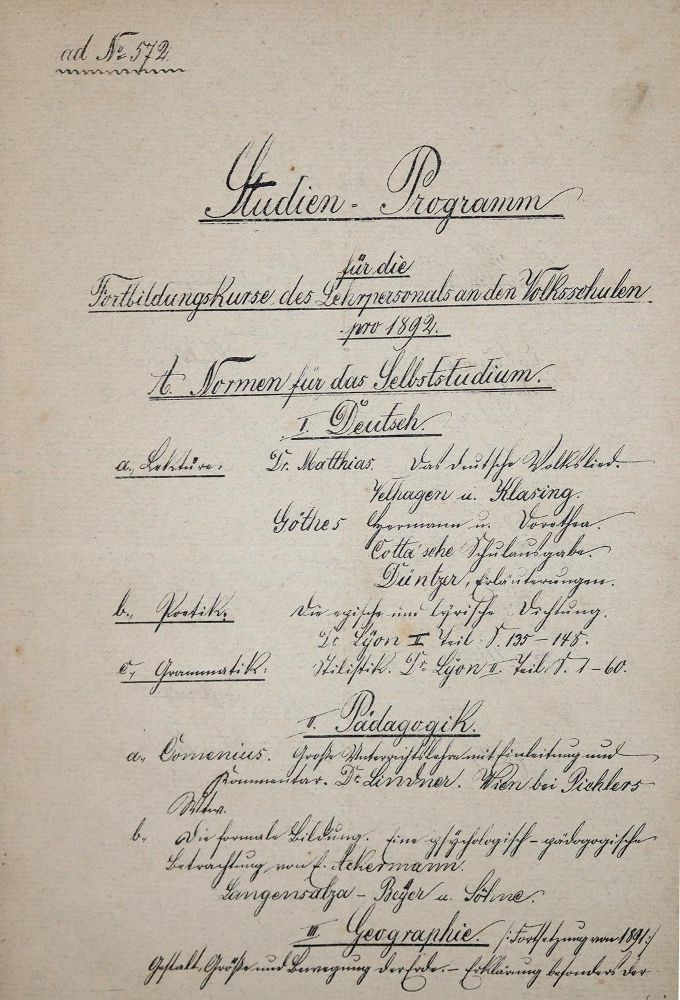 ad № 572.
Studien-Programm
für die
Fortbildungskurse des Lehrpersonals an den Volksschulen
pro 1892.
A. Normen für das Selbststudium.
I. Deutsch.
a., Lektüre. Dr. Matthias. Das deutsche Volkslied.
Velhagen u. Klasing.
Göthes Hermann u. Dorothea.
Cotta'sche Schulausgabe.
Düntzer, Erläuterungen.
b., Poetik. Die epische und lyrische Dichtung.
Dr. Lÿon II Teil S. 135-145.
c, Grammatik. Stilistik. Dr. Lÿon II. Teil. S. 1-60.
II. Pädagogik.
a, Comenius. Große Unterrichtslehre mit Einleitung und
Kommentar. Dr. Lindner. Wien bei Pichlers
Wtw.
b, Die formale Bildung. Eine psÿchologisch-pädagogische
Betrachtung von E. Ackermann.
Langensalza - Beÿer u. Söhne.
III. Geographie. /:Fortsetzung von 1891:/
Gestalt, Größe und Bewegung der Erde. - Erklärung besonders der